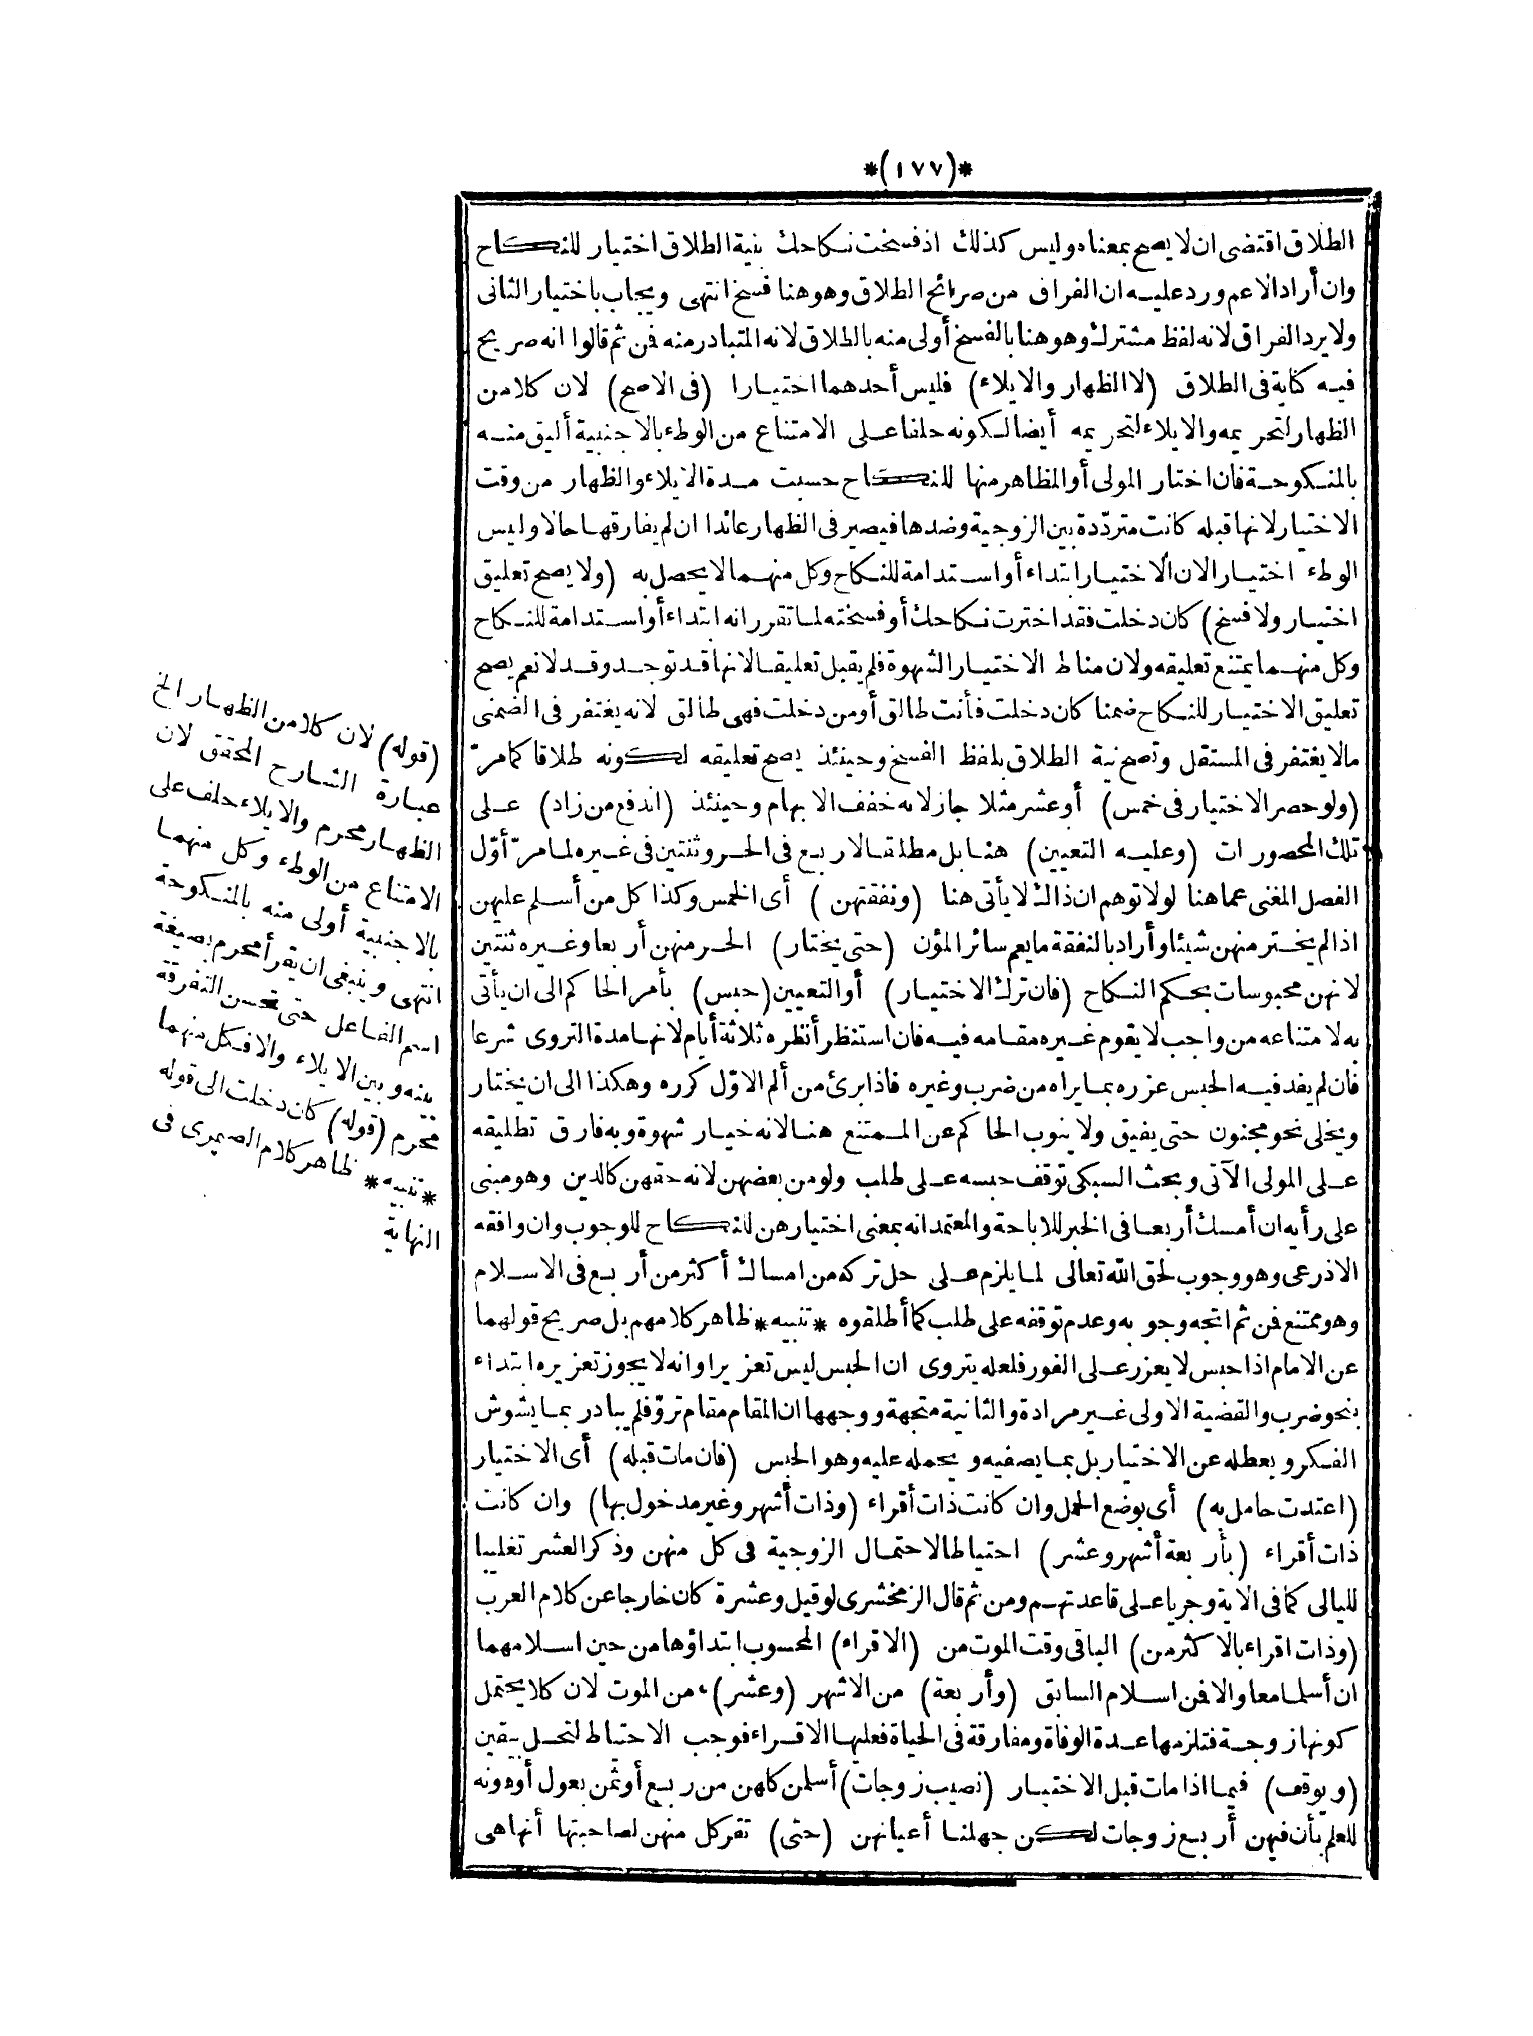 *(١٧٧)*
الطلاق اقتضى ان لا يصح بمعناه وليس كذلك اذ فسخت نكاحك بنية الطلاق اختيار للنكاح
وان أراد الاعم ورد عليه ان الفراق من صرائح الطلاق وهو هنا فسخ انتهى ويجاب باختيار الثانى
ولا يرد الفراق لانه لفظ مشترك وهو هنا بالفسخ أولى منه بالطلاق لانه المتبادر منه فمن ثم قالوا انه صريح
فيه كناية فى الطلاق (لا الظهار والايلاء) فليس أحدهما اختيارا (فى الاصح) لان كلا من
الظهار لتحريمه والايلاء لتحريمه أيضا لكونه حلفا على الامتناع من الوطء بالاجنبية أليق منه
بالمنكوحة فان اختار المولى أو المظاهر منها للنكاح حسبت مدة الايلاء والظهار من وقت
الاختيار لانها قبله كانت متردّدة بين الزوجية وضدها فيصير فى الظهار عائدا ان لم يفارقها حالا وليس
الوطء اختيارا لان الاختيار ابتداء أو استدامة للنكاح وكل منهما لا يحصل به (ولا يصح تعليق
اختيار ولا فسخ) كان دخلت فقد اخترت نكاحك أو فسخته لما تقرر انه ابتداء أو استدامة للنكاح
وكل منهما يمتنع تعليقه ولان مناط الاختيار الشهوة فلم يقبل تعليقا لانها قد توجد وقد لا نعم يصح
تعليق الاختيار للنكاح ضمنا كان دخلت فأنت طالق أو من دخلت فهى طالق لانه يغتفر فى الضمنى
ما لا يغتفر فى المستقل وتصح نية الطلاق بلفظ الفسخ وحينئذ يصح تعليقه لكونه طلاقا كما مرّ
(ولو حصر الاختيار فى خمس) أو عشر مثلا جاز لانه خفف الابهام وحينئذ (اندفع من زاد) على
تلك المحصورات (وعليه التعيين) هنا بل مطلقا لاربع فى الحر وثنتين فى غيره لما مرّ أوّل
الفصل المغنى عما هنا لولا توهم ان ذاك لا يأتى هنا (ونفقتهن) أى الخمس وكذا كل من أسلم عليهن
اذا لم يختر منهن شيئا وأراد بالنفقة ما يعم سائر المؤن (حتى يختار) الحر منهن أربعا وغيره ثنتين
لانهن محبوسات بحكم النكاح (فان ترك الاختيار) أو التعيين (حبس) بأمر الحاكم الى ان يأتى
به لامتناعه من واجب لا يقوم غيره مقامه فيه فان استنظر أنظره ثلاثة أيام لانها مدة التروى شرعا
فان لم يفد فيه الحبس عزره بما يراه من ضرب وغيره فاذا برئ من ألم الاوّل كرره وهكذا الى ان يختار
ويخلى نحو مجنون حتى يفيق ولا ينوب الحاكم عن الممتنع هنا لانه خيار شهوة وبه فارق تطليقه
على المولى الآتى وبحث السبكى توقف حبسه على طلب ولو من بعضهن لانه حقهن كالدين وهو مبنى
على رأيه ان أمسك أربعا فى الخبر للاباحة والمعتمد انه بمعنى اختيارهن للنكاح للوجوب وان وافقه
الاذرعى وهو وجوب لحق الله تعالى لما يلزم على حل تركه من امساك أكثر من أربع فى الاسلام
وهو ممتنع فمن ثم اتجه وجوبه وعدم توقفه على طلب كما أطلقوه *تنبيه* ظاهر كلامهم بل صريح قولهما
عن الامام اذا حبس لا يعزر على الفور فلعله يتروى ان الحبس ليس تعزيرا وانه لا يجوز تعزيره ابتداء
بنحو ضرب والقضية الاولى غير مرادة والثانية متجهة ووجهها ان المقام مقام تروّ فلم يبادر بما يشوش
الفكر ويعطله عن الاختيار بل بما يصفيه ويحمله عليه وهو الحبس (فان مات قبله) أى الاختيار
(اعتدت حامل به) أى بوضع الحمل وان كانت ذات أقراء (وذات أشهر وغير مدخول بها) وان كانت
ذات أقراء (بأربعة أشهر وعشر) احتياطا لاحتمال الزوجية فى كل منهن وذكر العشر تغليبا
لليالى كما فى الاية وجريا على قاعدتهم ومن ثم قال الزمخشرى لو قيل وعشرة كان خارجا عن كلام العرب
(وذات اقراء بالاكثر من) الباقى وقت الموت من (الاقراء) المحسوب ابتداؤها من حين اسلامهما
ان أسلما معا والا فمن اسلام السابق (وأربعة) من الاشهر (وعشر) من الموت لان كلا يحتمل
كونها زوجة فتلزمها عدة الوفاة ومفارقة فى الحياة فعليها الاقراء فوجب الاحتياط لتحل بيقين
(ويوقف) فيما اذا مات قبل الاختيار (نصيب زوجات) أسلمن كلهن من ربع أو ثمن بعول أو دونه
للعلم بأن فيهن أربع زوجات لكن جهلنا أعيانهن (حتى) تقر كل منهن لصاحبتها أنها هى
(قوله) لان كلا من الظهار الخ
عبارة الشارح المحقق لان
الظهار محرم والايلاء حلف على
الامتناع من الوطء وكل منهما
بالاجنبية أولى منه بالمنكوحة
انتهى وينبغى ان يقرأ محرم بصيغة
اسم الفاعل حتى تحسن التفرقة
بينه وبين الايلاء والا فكل منهما
محرم (قوله) كان دخلت الى قوله
*تنبيه* ظاهر كلام الصيمرى فى
النهاية